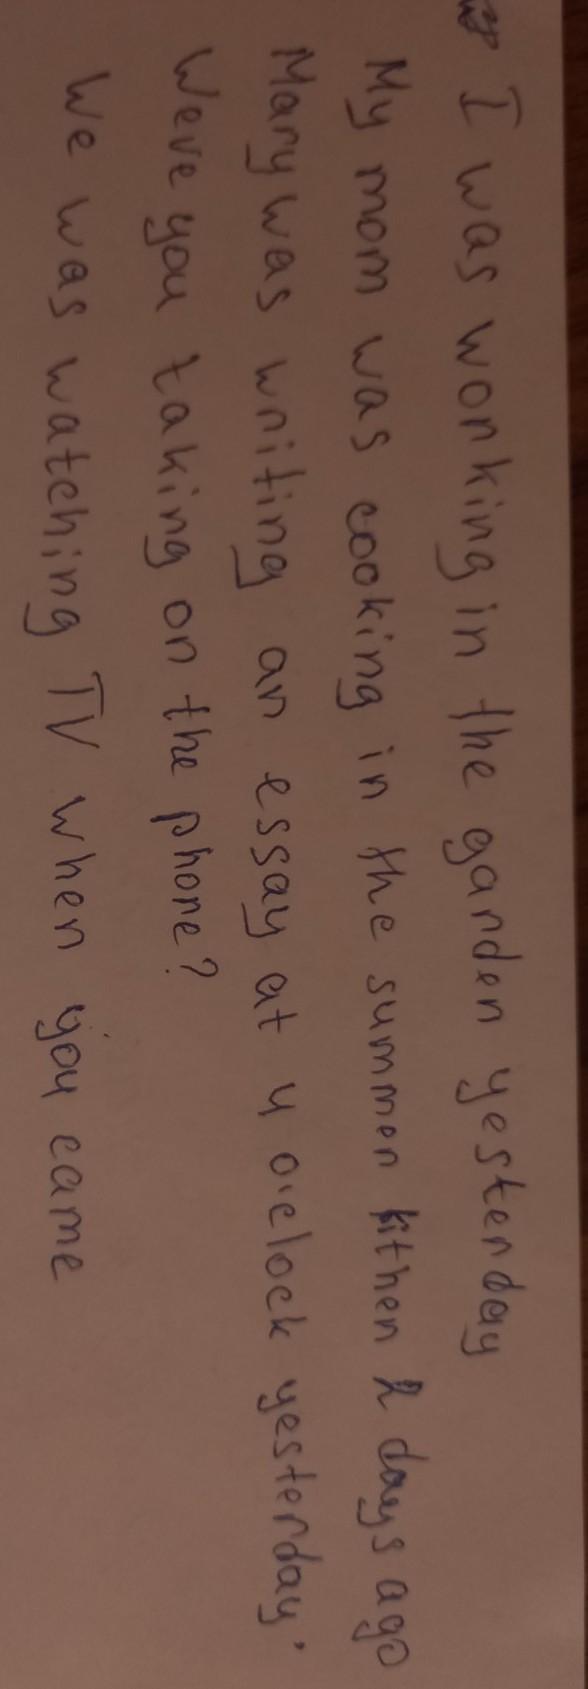 I was working in the garden yesterday
My mom was cooking in the summer kithen 2 days ago
Mary was writing an essay at 4 o'clock yesterday.
Were you taking on the phone?
We was watching TV when you came